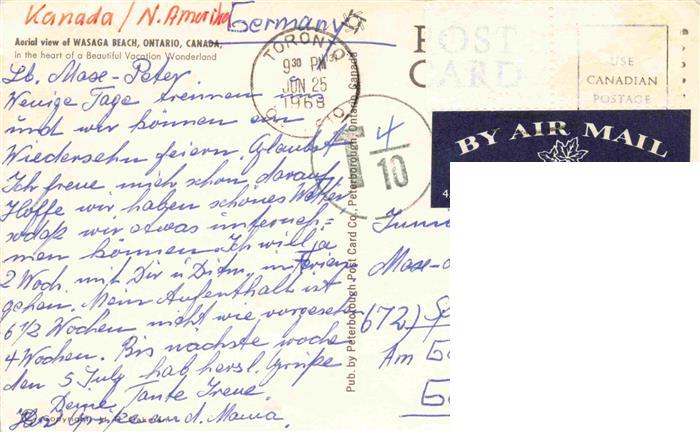 Kanada / N. Amerika
Germany
Aerial view of WASAGA BEACH, ONTARIO, CANADA,
in the heart of a Beautiful Vacation Wonderland
Lb. Mase-Peter.
Wenige Tage trennen uns
und wir können ein
Wiedersehn feiern. Glaubst
Ich freue mich schon darauf
Hoffe wir haben schönes Wetter
sodaß wir etwas unterneh-
men können. Ich will ja
2 Woch. mit Dir u in Ferien
gehen. Mein Aufenthalt ist
6 1/2 Wochen nicht wie vorgesehn
4 Wochen. Bis nächste woche
den 5 July hab herzl. Grüße
Deine Tante Irene.
Herz Grüße and. Mama.
TORONTO
9 30 PM
JUN 25
1968
ONTARIO
T 4/10
Pub. by Peterborough Post Card Co., Peterborough, Ontario, Canada
POST
CARD
USE
CANADIAN
POSTAGE
BY AIR MAIL
Mase-
672) Sp
Am